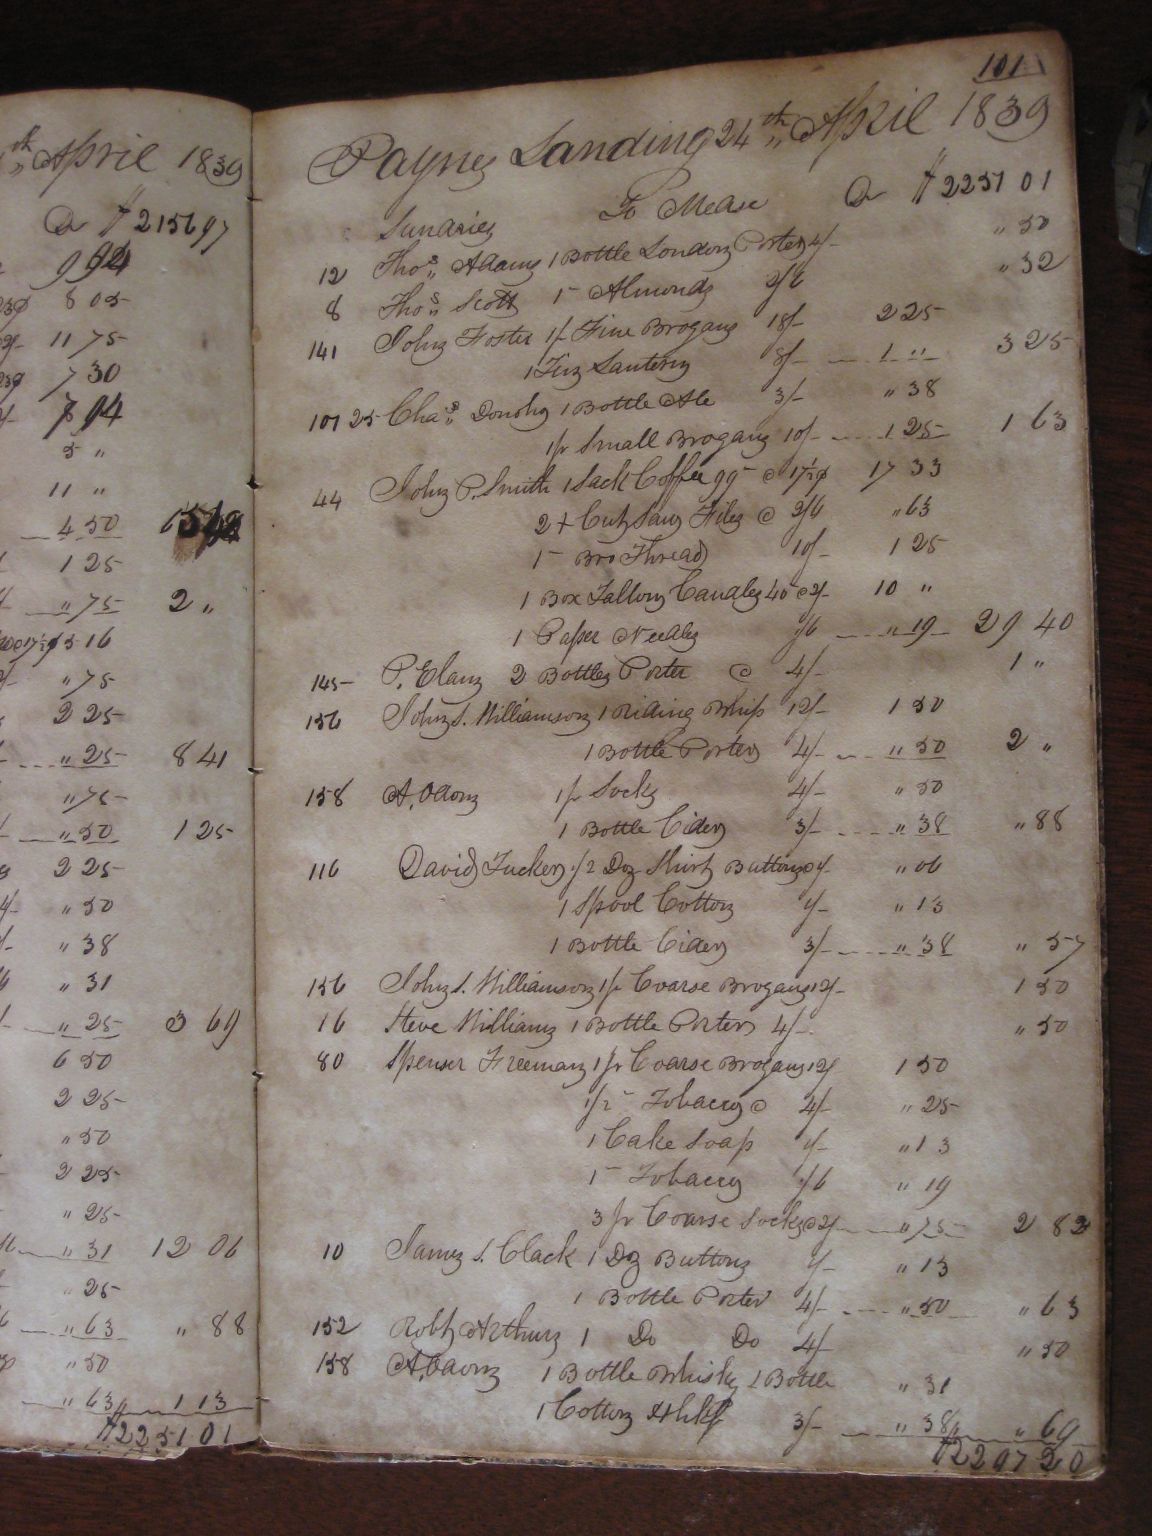 th April 1839
Dr $2156 97
9 94
8 05
11 75
7 30
7 04
5 "
11 "
4 50
1 25
" 75 2 "
5 16
" 75
2 25
" 25 8 41
" 75
" 50 1 25
2 25
" 50
" 38
" 31
" 25 3 69
6 50
2 25
" 50
2 25
" 25
" 31 12 06
" 25
" 63 " 88
" 50
" 63 1 13
$2251 01
101
Paynes Landing 24th April 1839
Sundries To Mdse Dr $2251 01
12 Thos Adams 1 Bottle London Porter 4/- " 50
8 Thos Scott 1 Almonds 2/6 " 32
141 John Foster 1 pr Fine Brogans 18/- 2 25
1 Tin Lantern 8/- 1 " 3 25
107 25 Chas Donoho 1 Bottle Ale 3/- " 38
1 pr Small Brogans 10/- 1 25 1 63
44 John P. Smith 1 Sack Coffee 99 @ 17½ 17 33
2 + Cut Saw Files @ 2/6 " 63
1 Bro Thread 10/- 1 25
1 Box Tallow Candles 40 @ 2/- 10 "
1 Paper Needles 1/6 " 19 29 40
145 P. Elam 2 Bottles Porter @ 4/- 1 "
156 John S. Williamson 1 Riding Whip 12/- 1 50
1 Bottle Porter 4/- " 50 2 "
158 A. Odom 1 pr Socks 4/- " 50
1 Bottle Cider 3/- " 38 " 88
116 David Tucker 1/2 Doz Shirt Buttons @ 1/- " 06
1 Spool Cotton 1/- " 13
1 Bottle Cider 3/- " 38 " 57
156 John S. Williamson 1 pr Coarse Brogans 12/- 1 50
16 Steve Williams 1 Bottle Porter 4/- " 50
80 Spenser Freeman 1 pr Coarse Brogans 12/ 1 50
1/2 Tobacco @ 4/- " 25
1 Cake Soap 1/- " 13
1 Tobacco 1/6 " 19
3 pr Coarse Socks @ 2/- " 75 2 82
10 James S. Clack 1 Doz Buttons 1/- " 13
1 Bottle Porter 4/- " 50 " 63
152 Robt Arthurs 1 Do Do 4/- " 50
158 A. Odom 1 Bottle Whisky & Bottle " 31
1 Cotton Hhkf 3/- " 38 " 69
$2297 20